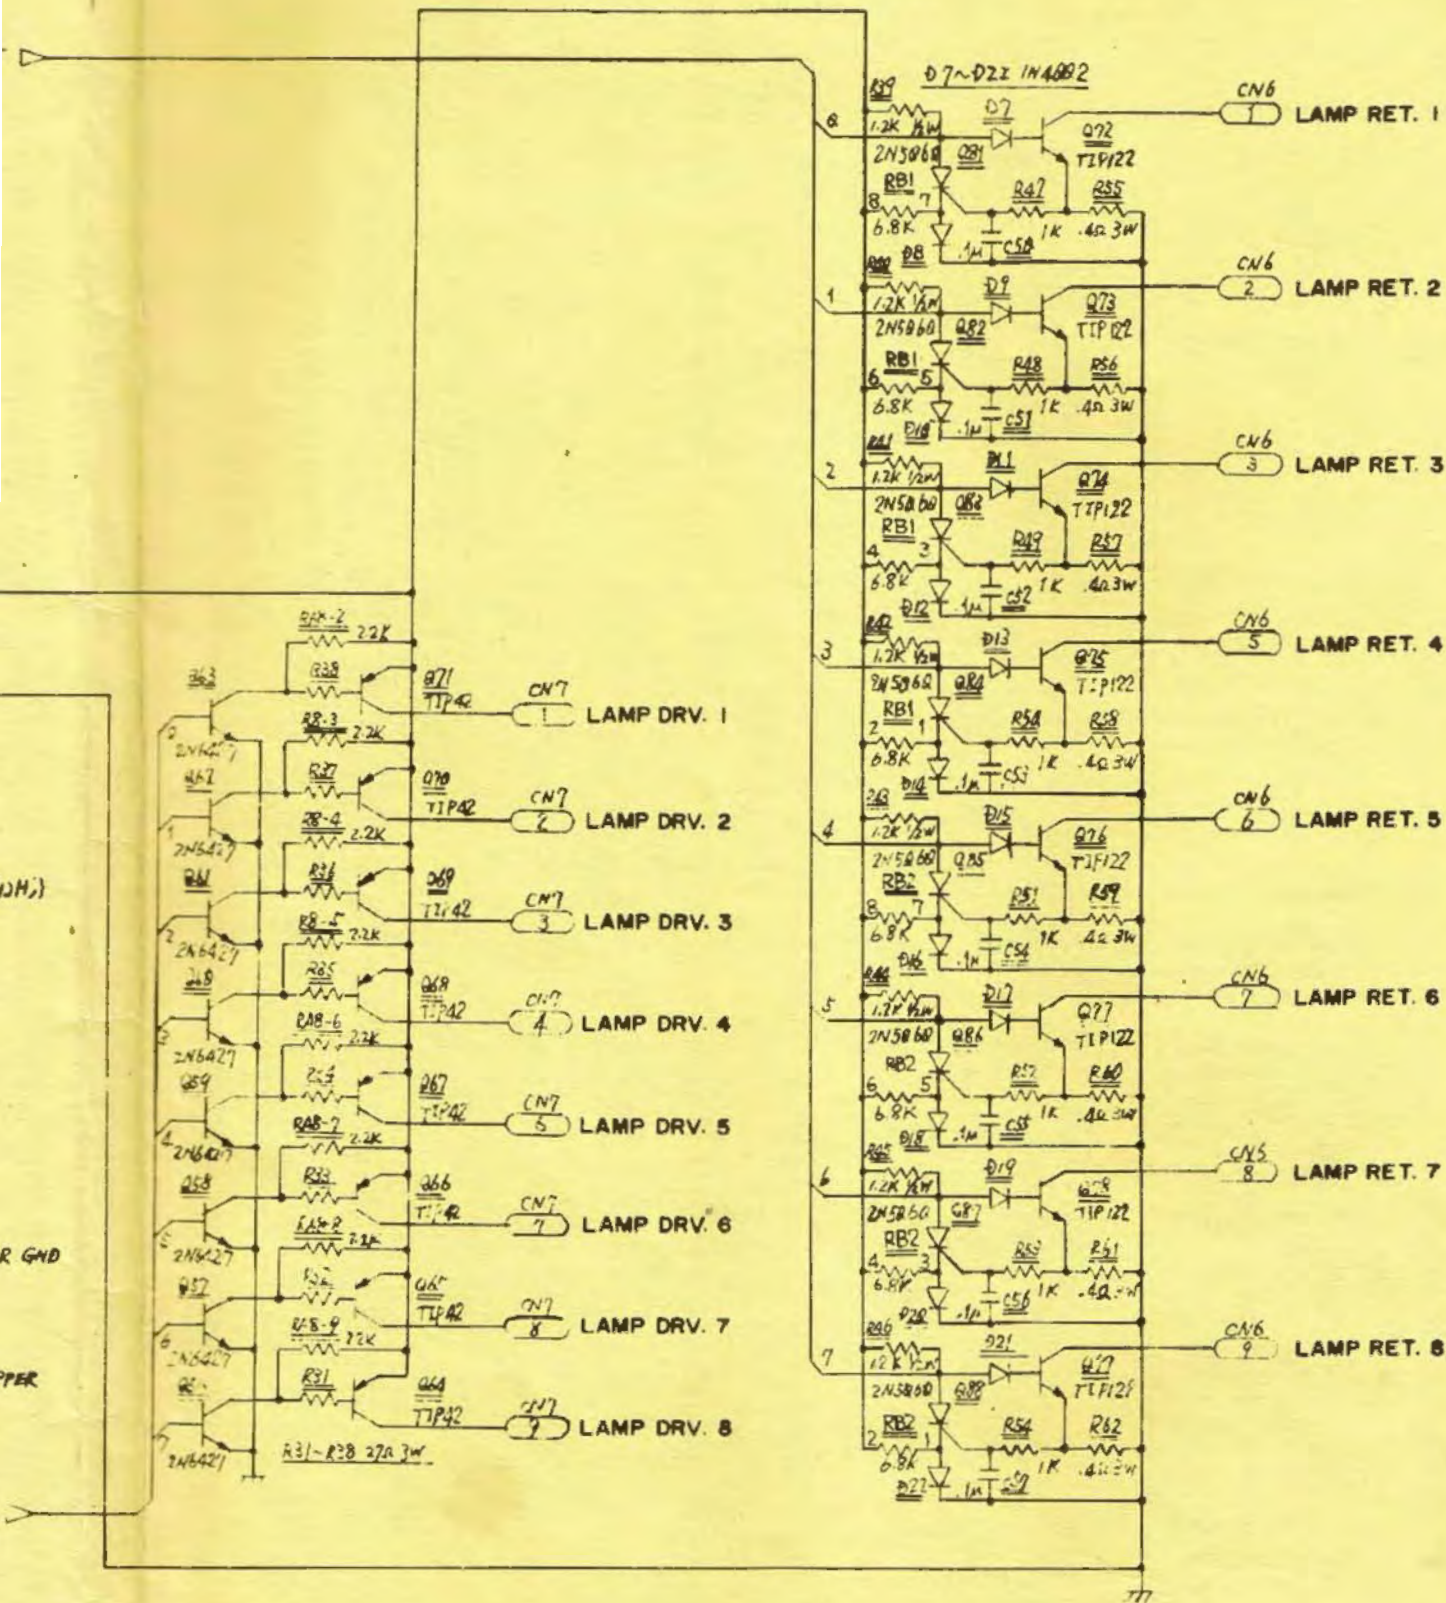 D7~D22 1N4002
R39
1.2K ½W
0
D7
Q72
TIP122
CN6
1
LAMP RET. 1
2N5060
Q81
RB1
8
7
6.8K
R47
1K
R55
.4Ω 3W
D8
.1μ
C50
1.2K ½W
1
D9
Q73
TIP122
CN6
2
LAMP RET. 2
2N5060
Q82
RB1
6
5
6.8K
R48
1K
R56
.4Ω 3W
D10
.1μ
C51
R41
1.2K ½W
2
D11
Q74
TIP122
CN6
3
LAMP RET. 3
2N5060
Q83
RB1
4
3
6.8K
R49
1K
R57
.4Ω 3W
D12
.1μ
C52
R42
1.2K ½W
3
D13
Q75
TIP122
CN6
5
LAMP RET. 4
2N5060
Q84
RB1
2
1
6.8K
R50
1K
R58
.4Ω 3W
D14
.1μ
C53
1.2K ½W
4
D15
Q76
TIP122
CN6
6
LAMP RET. 5
2N5060
Q85
RB2
8
7
6.8K
R51
1K
R59
.4Ω 3W
D16
.1μ
C54
R44
1.2K ½W
5
D17
Q77
TIP122
CN6
7
LAMP RET. 6
2N5060
Q86
RB2
6
5
6.8K
R52
1K
R60
.4Ω 3W
D18
.1μ
C55
R45
1.2K ½W
6
D19
Q78
TIP122
8
LAMP RET. 7
2N5060
Q87
RB2
4
3
6.8K
R53
1K
R61
.4Ω 3W
D20
.1μ
C56
R46
1.2K ½W
7
D21
CN6
9
LAMP RET. 8
2N5060
Q88
RB2
2
1
6.8K
R54
1K
R62
.4Ω 3W
D22
.1μ
RA8-2
2.2K
Q63
R38
Q71
TIP42
CN7
1
LAMP DRV. 1
2N6427
R8-3
2.2K
Q62
R37
Q70
TIP42
CN7
2
LAMP DRV. 2
1
2N6427
R8-4
2.2K
Q61
R36
Q69
TIP42
CN7
3
LAMP DRV. 3
2
2N6427
R8-5
2.2K
R35
Q68
TIP42
CN7
4
LAMP DRV. 4
3
2N6427
RA8-6
2.2K
Q59
Q67
TIP42
CN7
LAMP DRV. 5
4
2N6427
RA8-7
2.2K
Q58
R33
Q66
TIP42
CN7
7
LAMP DRV. 6
2N6427
2.2K
Q57
Q65
TIP42
CN7
8
LAMP DRV. 7
6
2N6427
RA8-9
2.2K
R31
Q64
TIP42
CN7
9
LAMP DRV. 8
7
2N6427
R31~R38 27Ω 3W
R GND
PPER